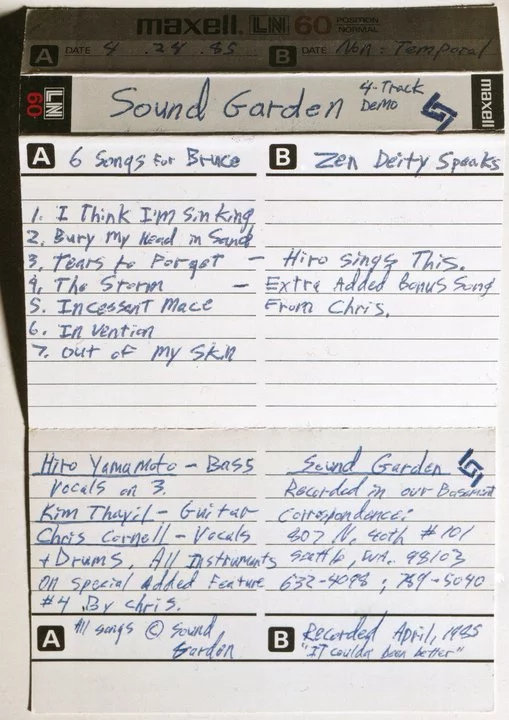 maxell. LN 60 POSITION NORMAL
A DATE 4 .24 .85 B DATE Non-Temporal
60 LN Sound Garden 4-Track Demo maxell
A 6 Songs For Bruce
B Zen Deity Speaks
1. I Think I'm Sinking
2. Bury My Head in Sand
3. Tears to Forget — Hiro sings This.
4. The Storm — Extra Added Bonus Song
From Chris.
5. Incessent Mace
6. Invention
7. Out of my Skin
Hiro Yamamoto - Bass
Vocals on 3.
Kim Thayil - Guitar
Chris Cornell - Vocals
+ Drums, All Instruments
On Special Added Feature
#4 By Chris.
Sound Garden
Recorded in our Basement
Correspondence:
Seattle, WA. 98103
A All songs © Sound
Garden
B Recorded April, 1985
"It couldn been better"